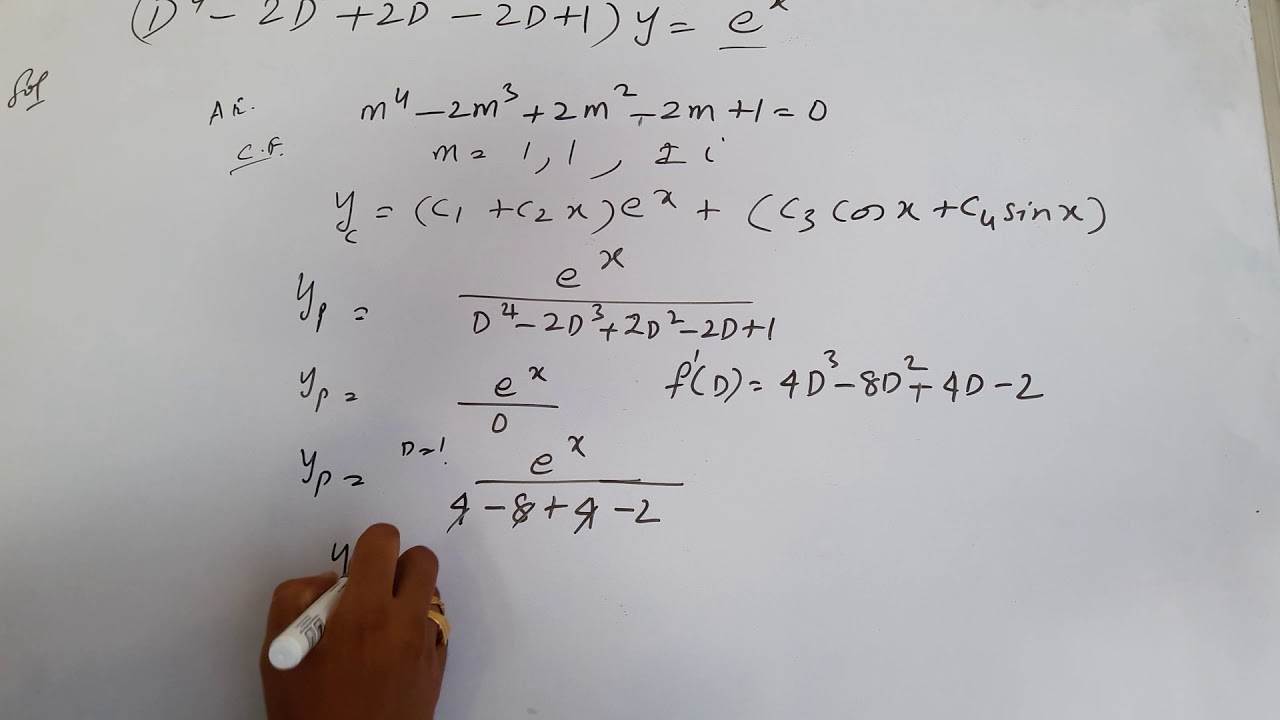 (D⁴ - 2D + 2D - 2D + 1) y = eˣ
Sol
A E. m⁴ - 2m³ + 2m² - 2m + 1 = 0
C.F. m = 1, 1, ± i
y_c = (C₁ + C₂ x) eˣ + (C₃ cos x + C₄ sin x)
y_p = eˣ / (D⁴ - 2D³ + 2D² - 2D + 1)
y_p = eˣ / 0 f'(D) = 4D³ - 8D² + 4D - 2
y_p = D=1 eˣ / (4 - 8 + 4 - 2)
y